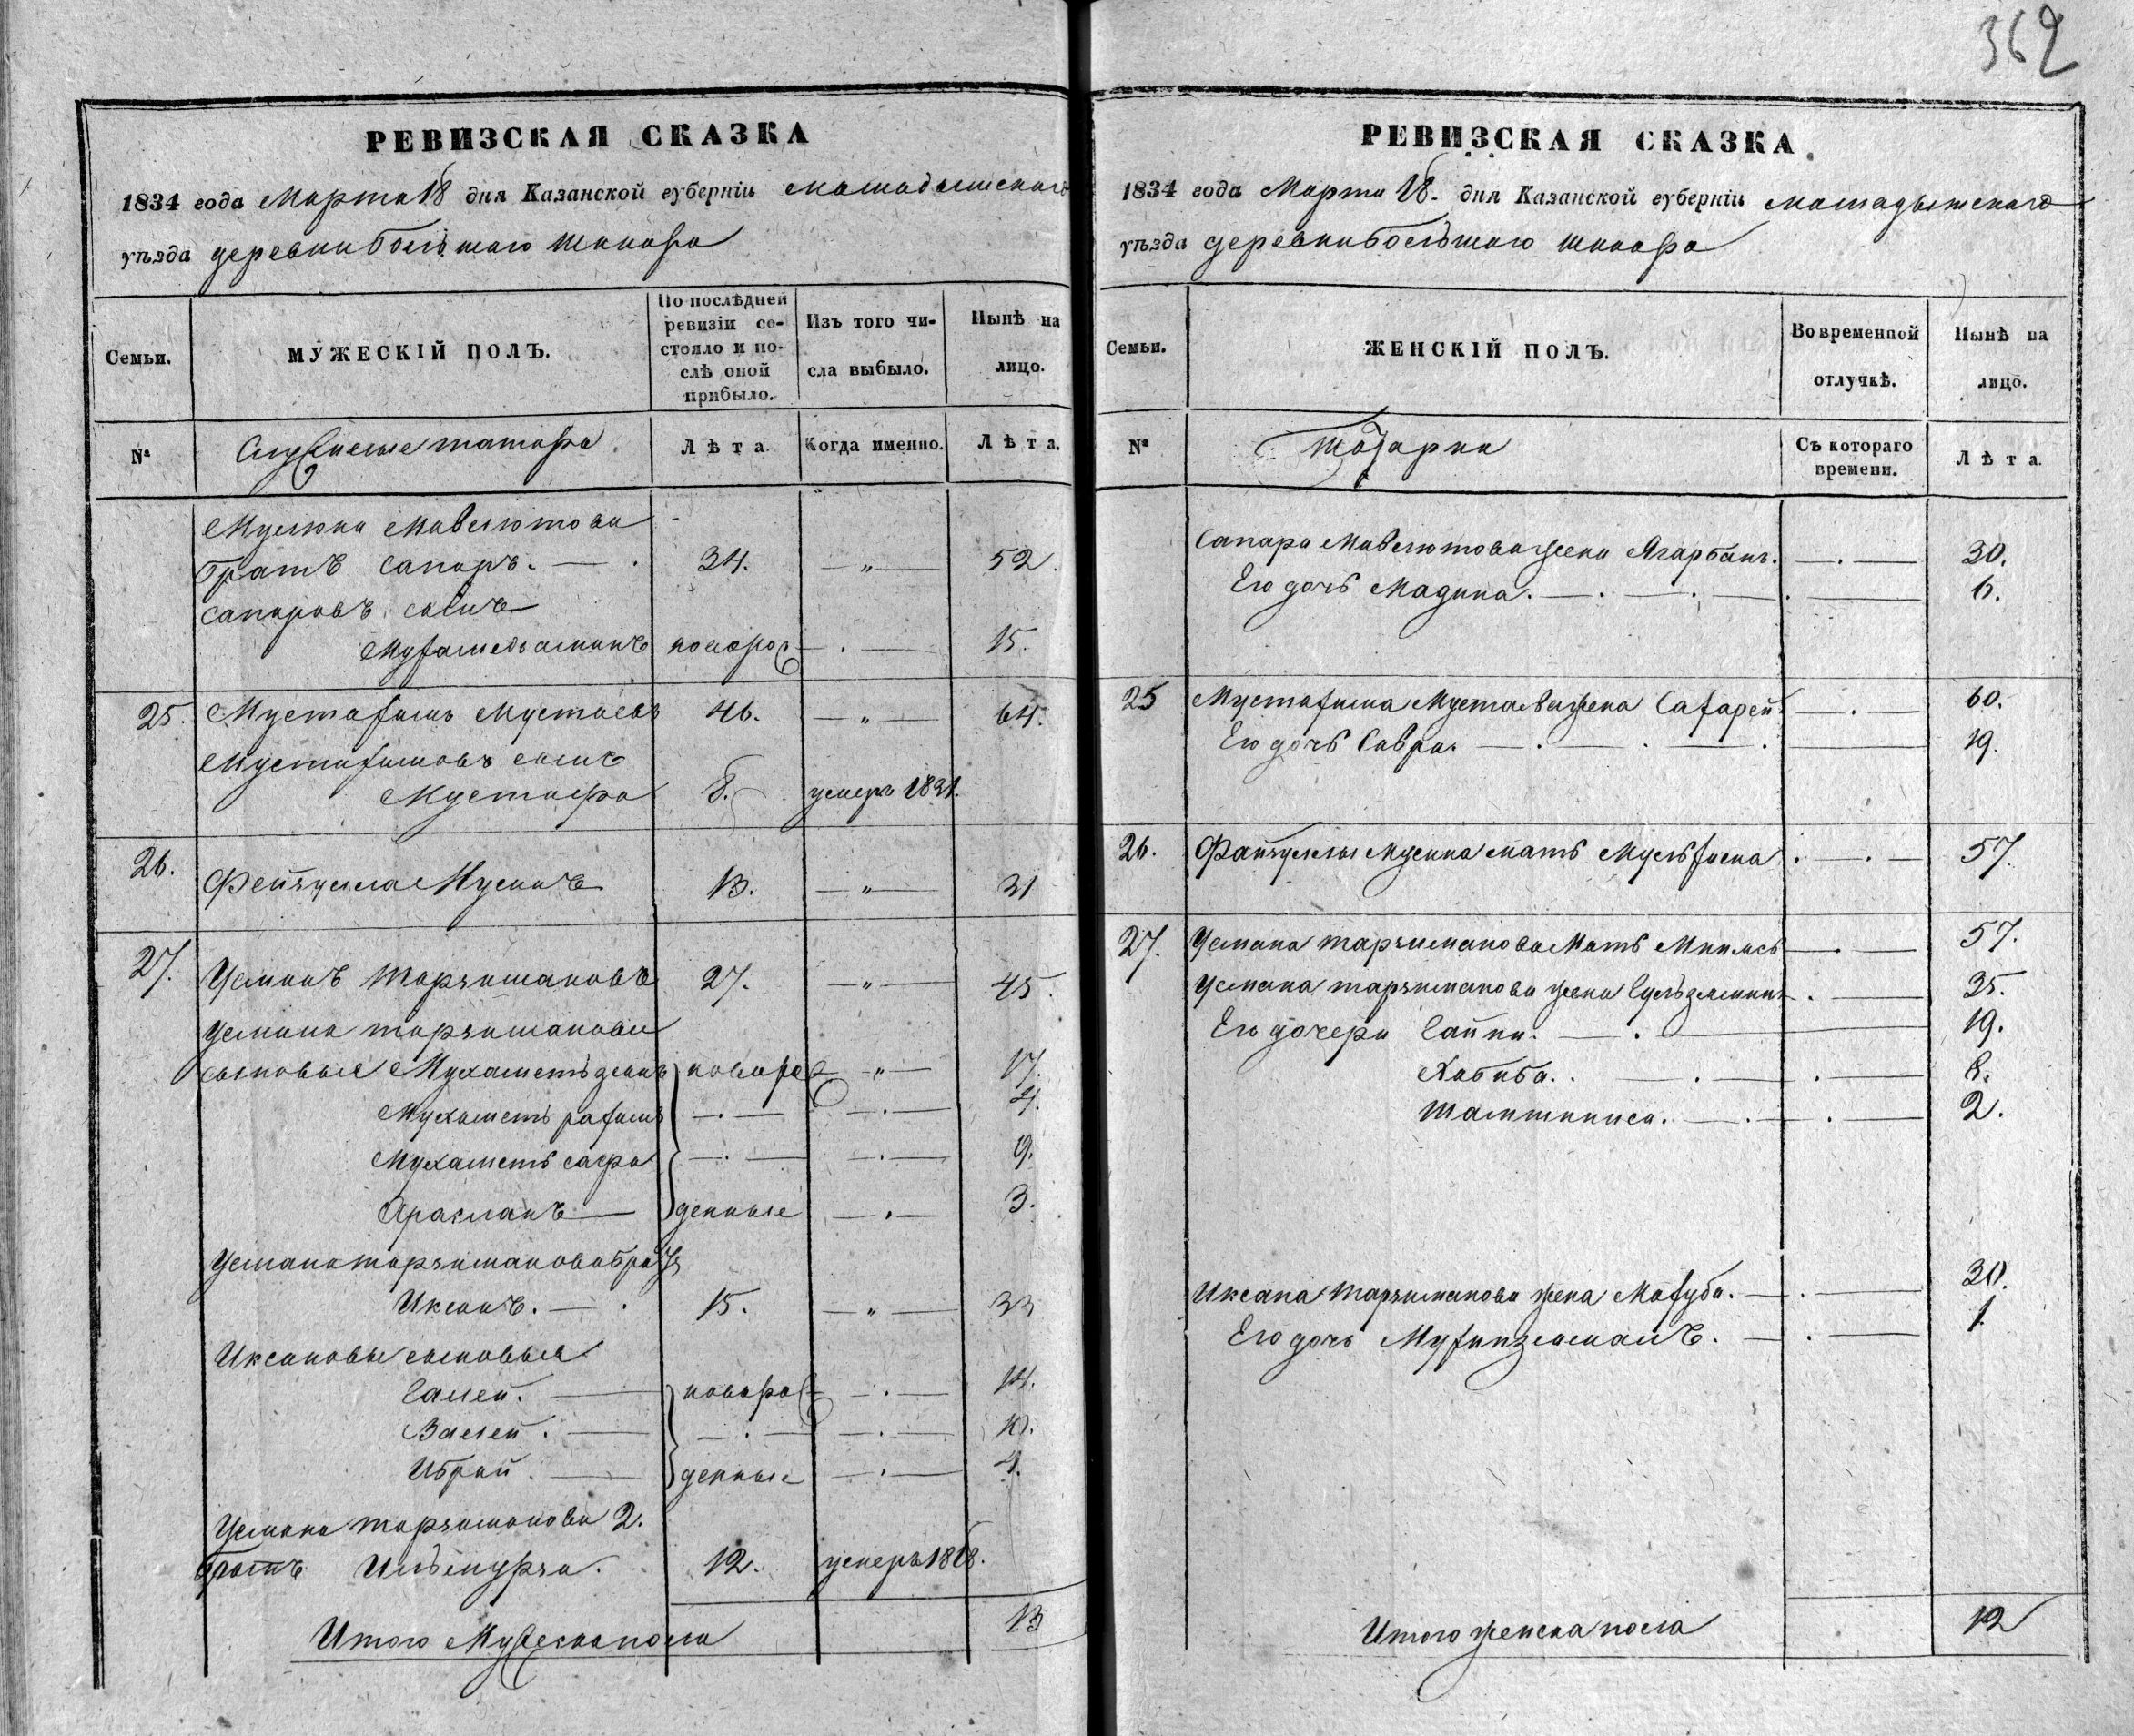 362
РЕВИЗСКАЯ СКАЗКА
1834 года Марта 18 дня Казанской губерніи мамадышскаго
уѣзда деревни большаго шинара
Семьи.
МУЖЕСКІЙ ПОЛЪ.
По послѣдней ревизіи состояло и послѣ оной прибыло.
Изъ того числа выбыло.
Нынѣ на лицо.
№
Служилые татара
Лѣта.
Когда именно.
Лѣта.
Мавлютова
братъ Сапаръ. 34. — „ — 52.
Сапаровъ сынъ
новорож — . — 15.
25. Мустаевъ 46. — „ — 64.
сынъ
Мустафа 8. умеръ 1831.
26. Фейзулла Мусинъ 13. — „ — 31
27. Усманъ Тарзимановъ 27. — „ — 45.
Усмана тарзиманова
сыновья Мухаметьзянъ новорож — „ — 17.
Мухаметь рахимъ — . — — . — 4.
Мухаметь сафа — . — — . — 9.
Арасланъ — денные — . — 3.
Усмана тарзиманова братья
Иксанъ. — . 15. — „ — 33
Иксановы сыновья
Салей. — новорож — . — 14.
Валей. — — . — — . — 10.
Ибрай. — денные — . — 4.
Усмана тарзиманова 2.
братъ 12. умеръ 1818.
Итого Мужеска пола 13
РЕВИЗСКАЯ СКАЗКА
1834 года Марта 18. дня Казанской губерніи мамадышскаго
уѣзда деревни большаго шинара
Семьи.
ЖЕНСКІЙ ПОЛЪ.
Во временной отлучкѣ.
Нынѣ на лицо.
№
Съ котораго времени.
Лѣта.
Сапара Мавлютова жена — . — 30.
Его дочь Мадина. — . — . — . — 6.
25 Мустаева жена — . — 60.
Его дочь — . — . — . — 19.
26. Фейзуллы Мусина мать — . — 57.
27. Усмана тарзиманова Мать — . — 57.
Усмана тарзиманова жена . — 35.
Его дочери — . — 19.
Хабиба. . — . — . — 8.
— . — . — 2.
Иксана тарзиманова жена Махуба. — . — 30.
Его дочь — . — 1.
Итого женска пола 12